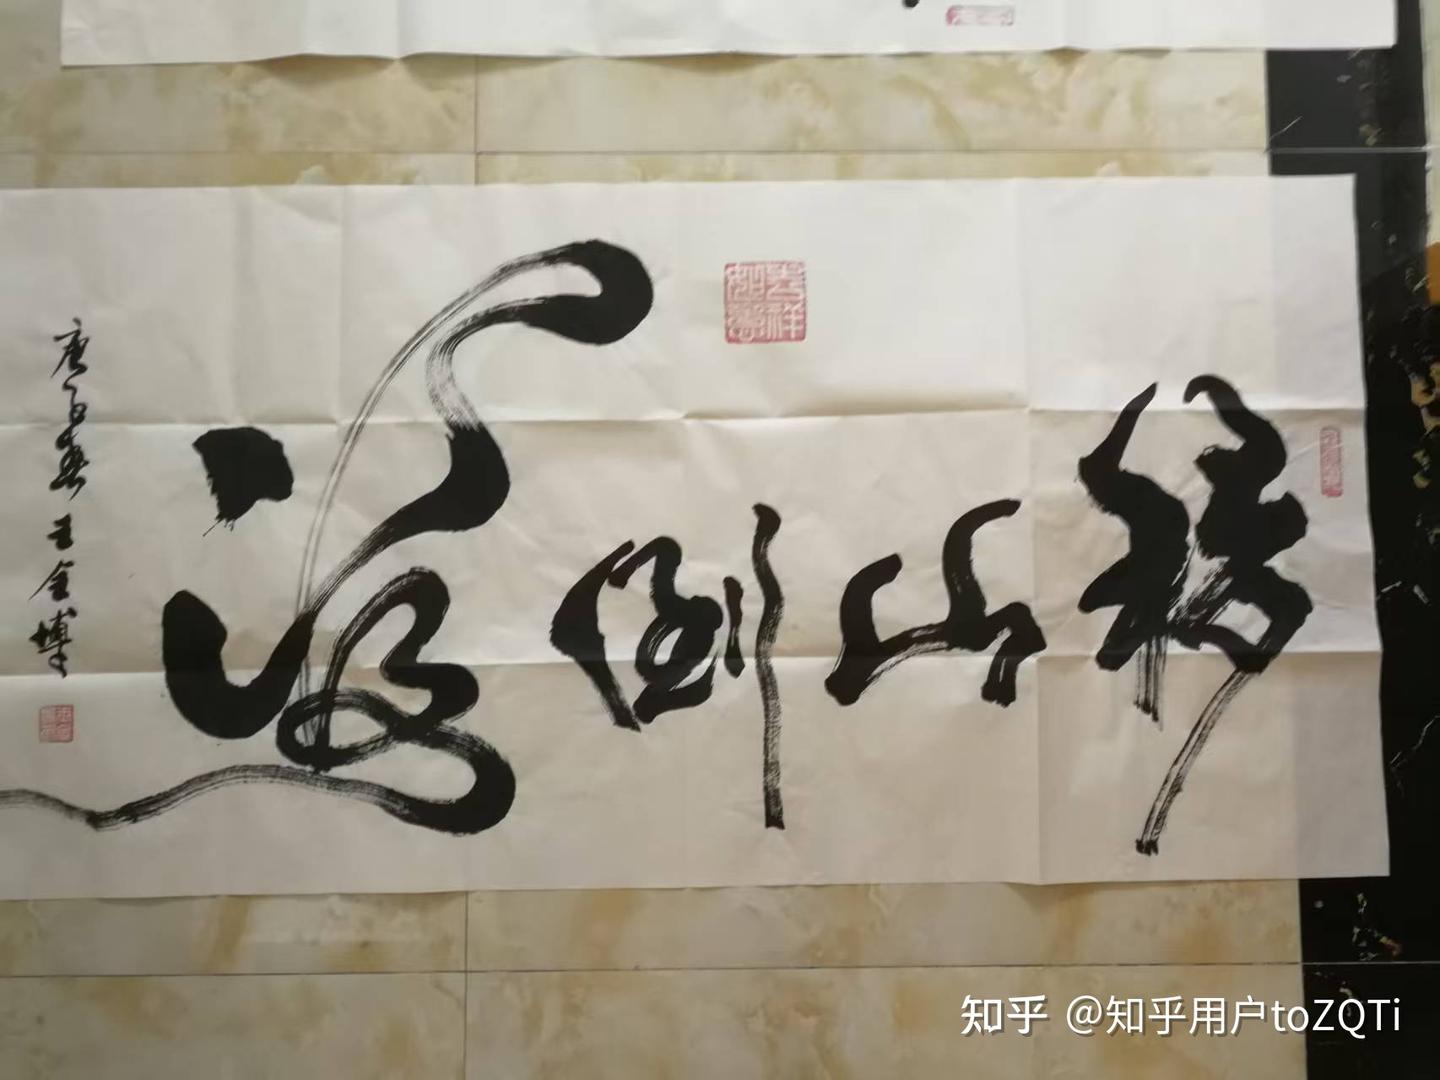 移山倒海
吉祥如意
庚子春 王金博
知乎 @知乎用户toZQTi